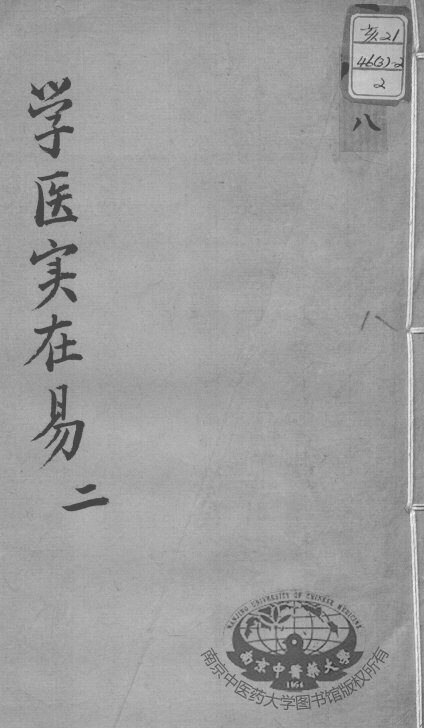 学医实在易 二
亥21
46(3)-2
2
八
八
NANJING UNIVERSITY OF CHINESE MEDICINE
南京中醫藥大學
1954
南京中医药大学图书馆版权所有